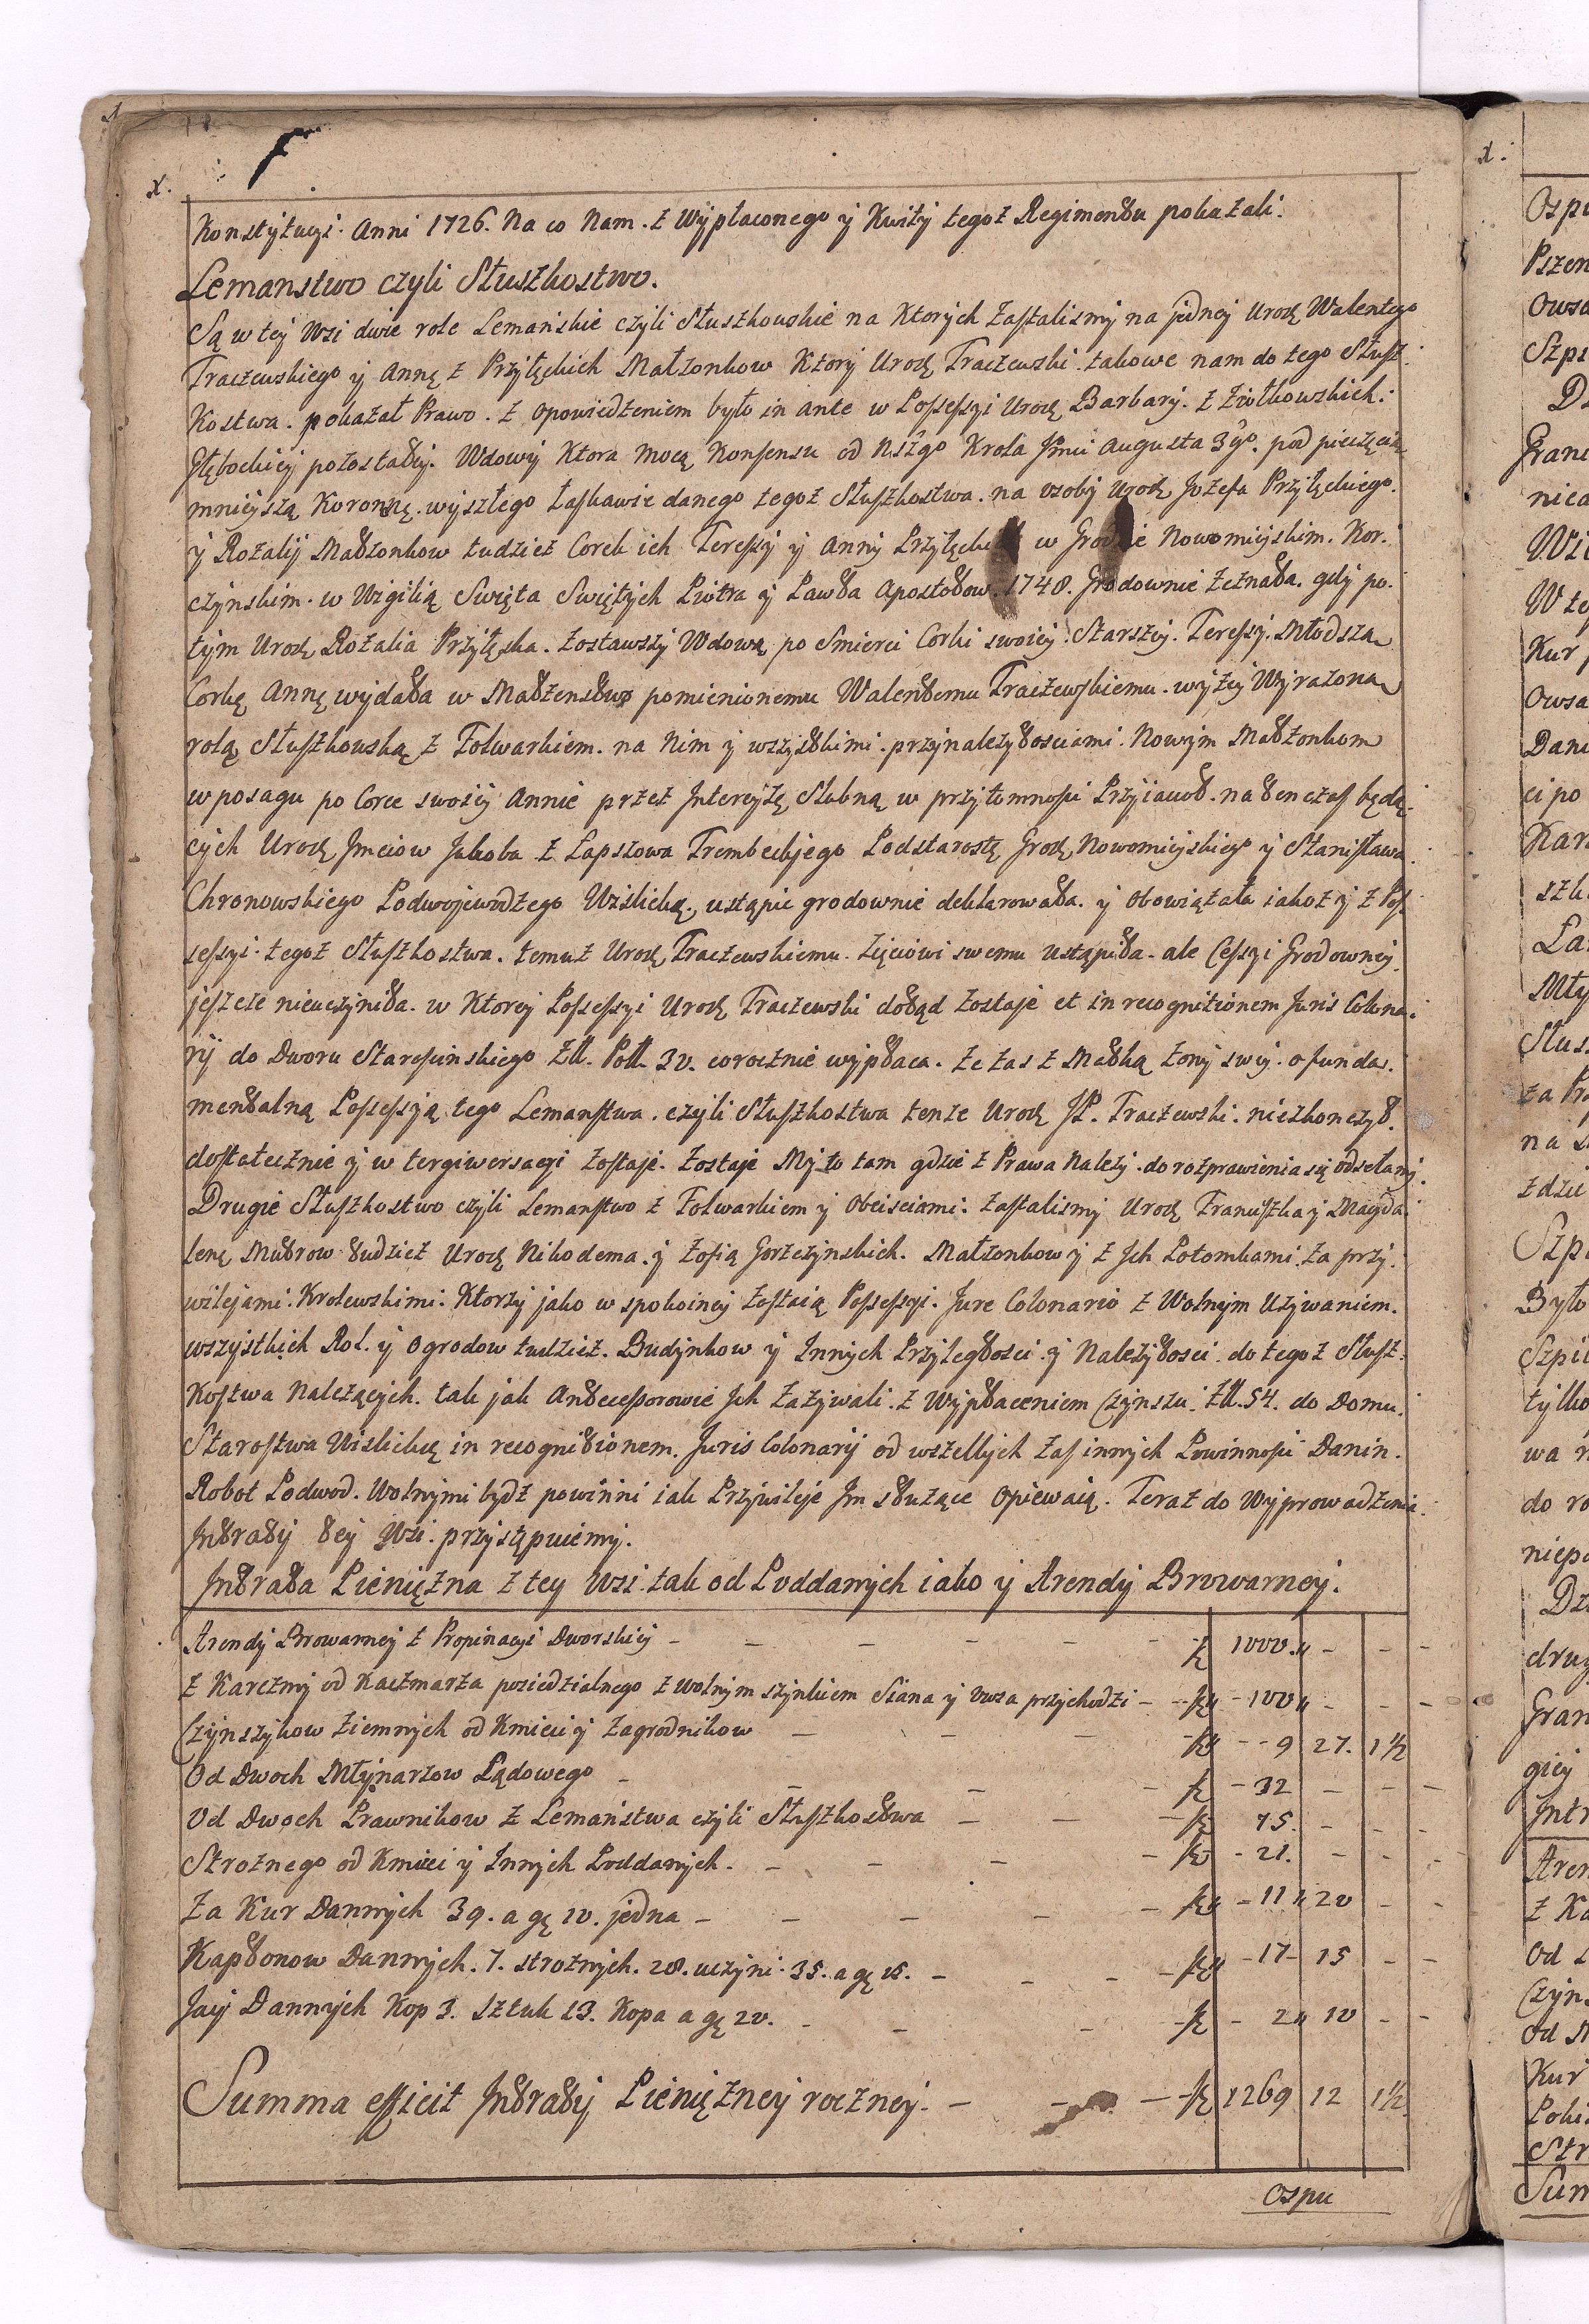 x.
Konstytucyi. Anni 1726. Na co Nam. z Wypłaconego y Kwity tegoż Regimentu pokazali.
Lemanstwo czyli Słuszkostwo.
Są w tey Wsi dwie role Lemańskie czyli Słuszkowskie na Ktorych Zastalismy na jednej Urodz Walentego
Traczewskiego y Annę z Przyłęckich Małżonkow Ktory Urodz Traczewski. takowe nam do tego Słusz.
Kostwa. pokazał Prawo. z opowiedzeniem było in ante w Possessyi Urodz Barbary. z Ziołkowskich.
Głębockiey pozostałey. Wdowy Ktora Mocą Konsensu od Nszgo Krola Jmci Augusta 3go. pod pieczęcią
mnieyszą Koronną. wyszłego łaskawie danego tegoż Słuszkostwa. na osoby Urodz Jozefa Przyłęckiego.
y Rozalij Małżonkow tudzież Corek ich Teressy y Anny w Nowomiyskim. Kor.
czynskim. w Wigilią Swięta Swiętych Piotra y Pawła Apostołow. 1748. Grodownie Zeznała. gdy po.
tym Urodz Rozalia Przyłęska. Zostawszy Wdową po Smierci Corki swoiey. Starszey. Teressy. Młodszą
Corkę Annę wydała w Małżenstwo pomienionemu Walentemu Traczewskiemu. wyżey Wyrażoną
rolą Słuszkowską z Folwarkiem. na Nim y wszystkimi. przynależytosciami. Nowym Małżonkom
w posagu po Corce swoiey Annie przez Intercyzę Slubną w przytomnosci Przyiaciół. na ten czas będą.
cych Urodz Jmciow Jakoba z Łapszowa Trembeckjego Podstarostę Grodz Nowomiyskiego y Stanisława.
Chronowskiego Podwojewodzego Wislicką, ustąpic grodownie deklarowała. y Obowiązała iakoż y z Pos.
sessyi. tegoż Słuszkostwa. temuż Urodz Traczewskiemu. Zięciowi swemu ustąpiła. ale Cessyi Grodowney.
jeszcze nieuczyniła. w Ktorey Possessyi Urodz Traczewski dotąd Zostaje et in recognitionem Juris Colona.
rij do Dworu Starościnskiego Zll. Poll. 30. corocznie wypłaca. Że zas z Matką Żony swey. o funda.
mentalną Possessyią tego Lemanstwa. czyli Słuszkostwa tenże Urodz JP. Traczewski. nieskonczył.
dostatecznie y w tergiwersacyi Zostaje. Zostaje My to tam gdzie z Prawa Należy. do rozprawienia się odsełamy.
Drugie Słuszkostwo czyli Lemanstwo z Folwarkiem y Obeisciami. Zastalismy Urodz Franciszka y Magda.
lenę tudzież Urodz Nikodema. y Zofią Gorczynskich. Małżonkow y z Jch Potomkami. Za przy.
wilejami. Krolewskimi. Ktorzy jako w spokoiney Zostaią Possessyi. Jure Colonario z Wolnym Używaniem.
wszystkich Rol. y Ogrodow tudzież. Budynkow y Innych Przyległosci. y Należytosci. do tegoż Słusz.
Kostwa Należących. tak jak Antecessorowie Jch Zażywali. z Wypłaceniem Czynszu. Zll. 54. do Domu.
Starostwa Wislickę in recognitionem. Juris Colonarij od wszelkich Zas innych Powinnosci Danin.
Robot Podwod. Wolnymi bydź powinni iak Przywileje Jm służące Opiewaią. Teraz do Wyprowadzenia.
Jntraty tey Wsi. przystępuiemy.
Jntrata Pieniężna z tey Wsi. tak od Poddanych iako y Arendy Browarney.
Arendy Browarney z Propinacyi Dworskiey - - - - - - 1000. - - -
z Karczmy od Kaczmarza posiedzialnego z wolnym szynkiem Siana y Owsa przychodzi - - 100 - - -
Czynszykow Ziemnych od Kmieci y Zagrodnikow - - - - 9 27. 1½
Od Dwoch Młynarzow Lądowego - - - - 32 - - -
Od Dwoch Prawnikow z Lemaństwa czyli Słuszkostwa - - - 75. - - -
Strożnego od Kmieci y Innych Poddanych. - - - - 21. - - -
Za Kur Dannych 39. a gę 10. jedna - - - - - 11 20 - -
Kapłonow Dannych. 7. strożnych. 28. uczyni. 35. a gę 15. - - - - 17 15 - -
Jay Dannych Kop 3. Sztuk 23. Kopa a gę 20. - - - - 2 10 - -
Summa efficit Jntraty Pieniężney roczney. - - - 1269 12 1½
Ospu